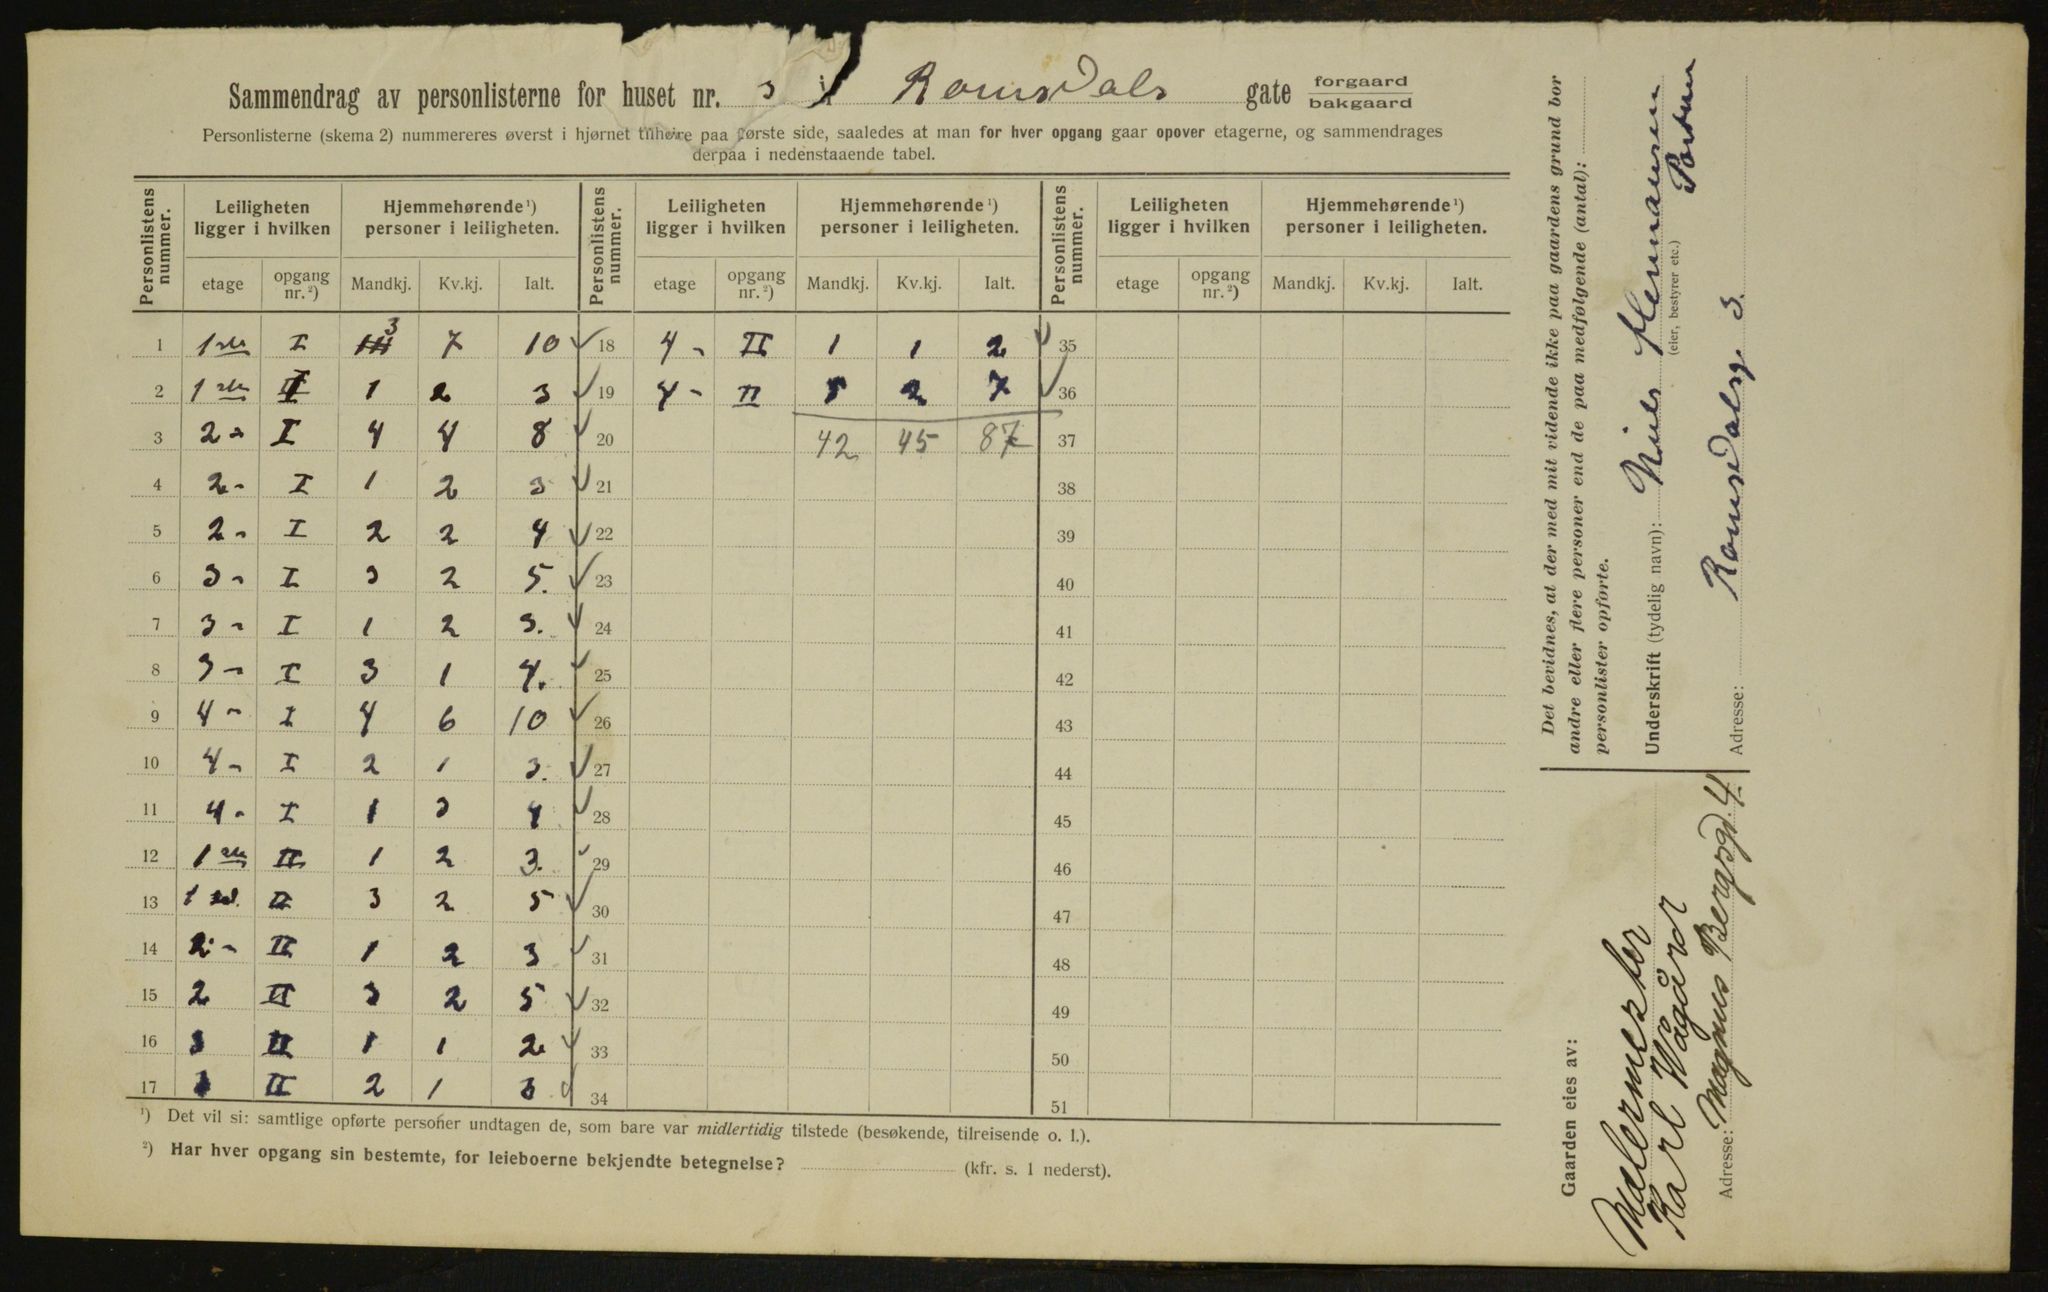 Sammendrag av personlisterne for huset nr. 3 i Romsdals gate forgaard bakgaard
Personlisterne (skema 2) nummereres øverst i hjørnet tilhøire paa første side, saaledes at man for hver opgang gaar opover etagerne, og sammendrages
derpaa i nedenstaaende tabel.
Personlistens nummer. Leiligheten ligger i hvilken Hjemmehørende ¹) personer i leiligheten. Personlistens nummer. Leiligheten ligger i hvilken Hjemmehørende ¹) personer i leiligheten. Personlistens nummer. Leiligheten ligger i hvilken Hjemmehørende ¹) personer i leiligheten.
etage opgang nr. ²) Mandkj. Kv.kj. Ialt. etage opgang nr. ²) Mandkj. Kv.kj. Ialt. etage opgang nr. ²) Mandkj. Kv.kj. Ialt.
1 1ste I 3 7 10 18 4 - II 1 1 2 35
2 1ste I 1 2 3 19 4 - II 5 2 7 36
3 2 - I 4 4 8 20 42 45 87 37
4 2 - I 1 2 3 21 38
5 2 - I 2 2 4 22 39
6 3 - I 3 2 5. 23 40
7 3 - I 1 2 3. 24 41
8 3 - I 3 1 4. 25 42
9 4 - I 4 6 10 26 43
10 4 - I 2 1 3. 27 44
11 4 - I 1 3 4 28 45
12 1ste II 1 2 3. 29 46
13 1 II 3 2 5 30 47
14 2 - II 1 2 3 31 48
15 2 II 3 2 5 32 49
16 3 II 1 1 2 33 50
17 3 II 2 1 3 34 51
¹) Det vil si: samtlige opførte personer undtagen de, som bare var midlertidig tilstede (besøkende, tilreisende o. l.).
²) Har hver opgang sin bestemte, for leieboerne bekjendte betegnelse? (kfr. s. 1 nederst).
Det bevidnes, at der med mit vidende ikke paa gaardens grund bor
andre eller flere personer end de paa medfølgende (antal):
personlister opførte.
Underskrift (tydelig navn): Nils Hermansen
(eier, bestyrer etc.)
Adresse: Romsdalsg. 3.
Gaarden eies av:
Malermester
Karl Wågård
Adresse: Magnus Bergsgd. 4.